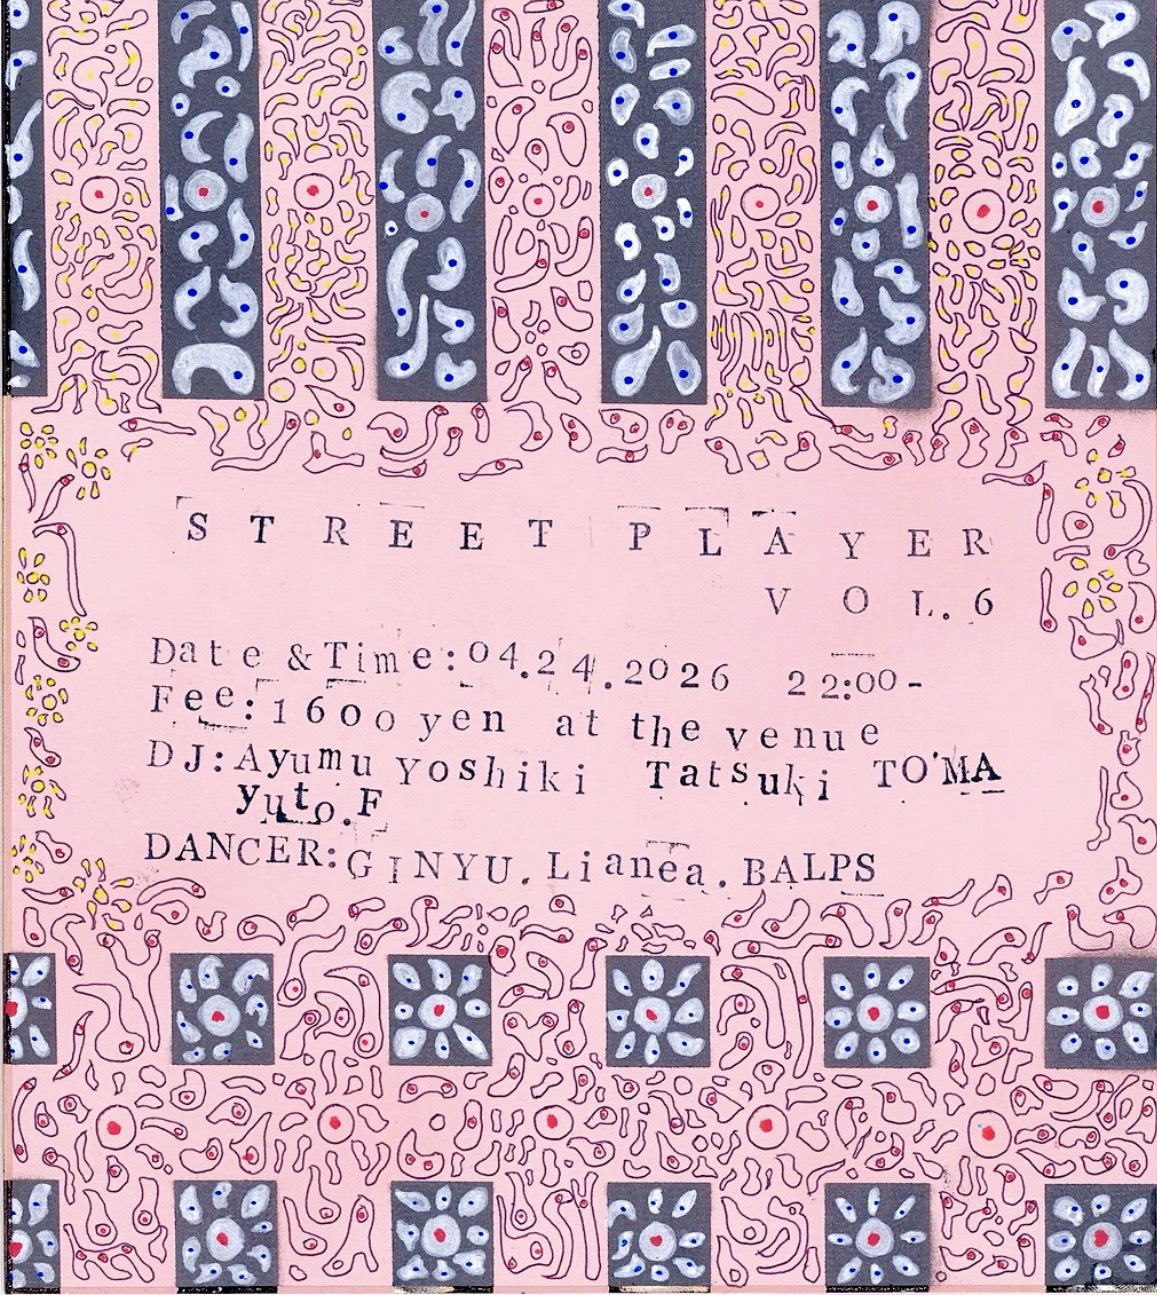 STREET PLAYER
VOL.6
Date &Time:04.24.2026 22:00-
Fee:1600 yen at the venue
DJ:Ayumu Yoshiki Tatsuki TO'MA
yuto.F
DANCER:GINYU.Lianea.BALPS